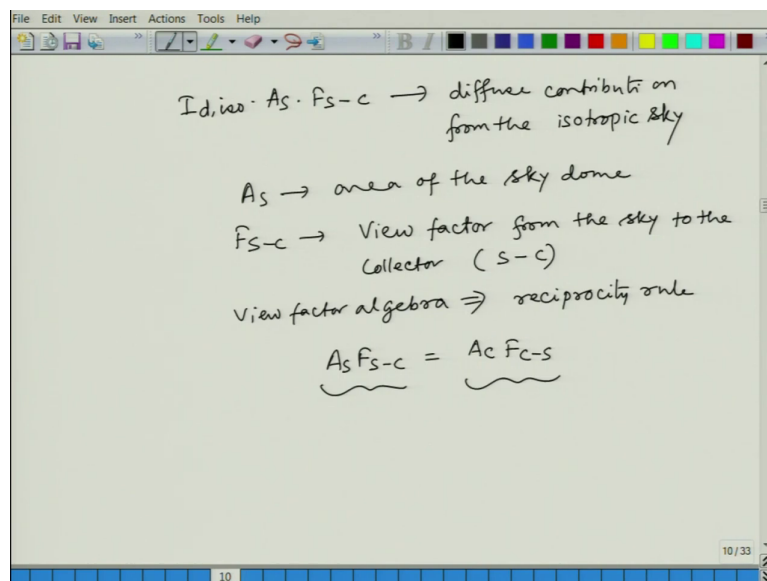 File Edit View Insert Actions Tools Help
B I
Id,iso · As · Fs-c → diffuse contribution
from the isotropic sky
As → area of the sky dome
Fs-c → View factor from the sky to the
Collector (s-c)
View factor algebra ⇒ reciprocity rule
As Fs-c = Ac Fc-s
10/33
10